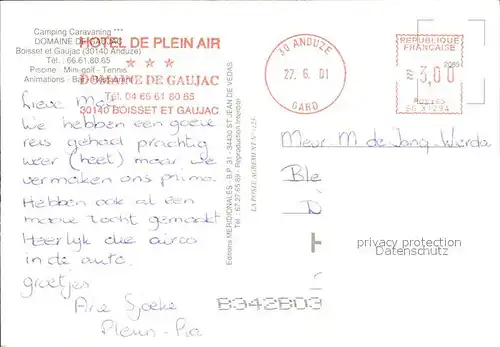 Camping Caravaning ***
DOMAINE DE GAUJAC
Boisset et Gaujac (30140 Anduze)
Tél. : 66.61.80.65
Piscine Mini-golf - Tennis
Animations - Bar - Restaurant
HOTEL DE PLEIN AIR
★ ★ ★
DOMAINE DE GAUJAC
Tél. 04 66 61 80 65
30140 BOISSET ET GAUJAC
30 ANDUZE
27. 6. 01
GARD
REPUBLIQUE
FRANCAISE
3,00
POSTES
Lieve
We hebben een goeie
reis gehad prachtig
weer (heet) maar we
vermaken ons prima.
Hebben ook al een
mooie tocht gemaakt
Heerlijk die airco
in de auto.
groetjes
Arie Sjoeke
Editions MERIDIONALES - B.P. 31 - 34430 ST JEAN DE VEDAS
Tél. 67.27.65.89 - Reproduction Interdite
Mevr. M de Jong
Ble
D
H
privacy protection
Datenschutz
B342B03